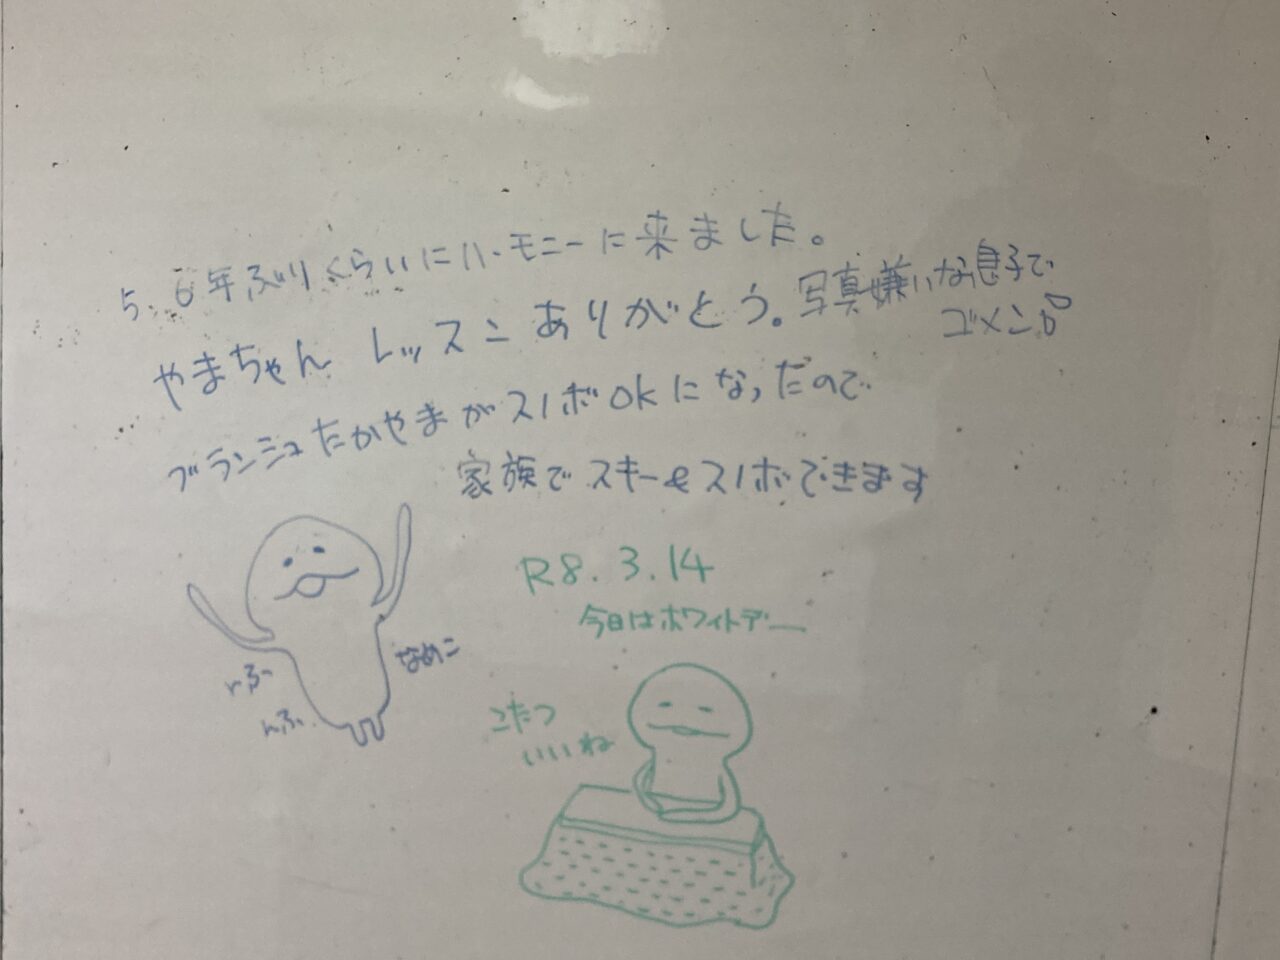 5、6年ぶりくらいにハーモニーに来ました。
やまちゃん レッスンありがとう。写真嫌いな息子で
ゴメン
ブランシュたかやまがスノボOKになったので
家族でスキー&スノボできます
R8.3.14
今日はホワイトデー
なめこ
んふー
んふー
こたつ
いいね